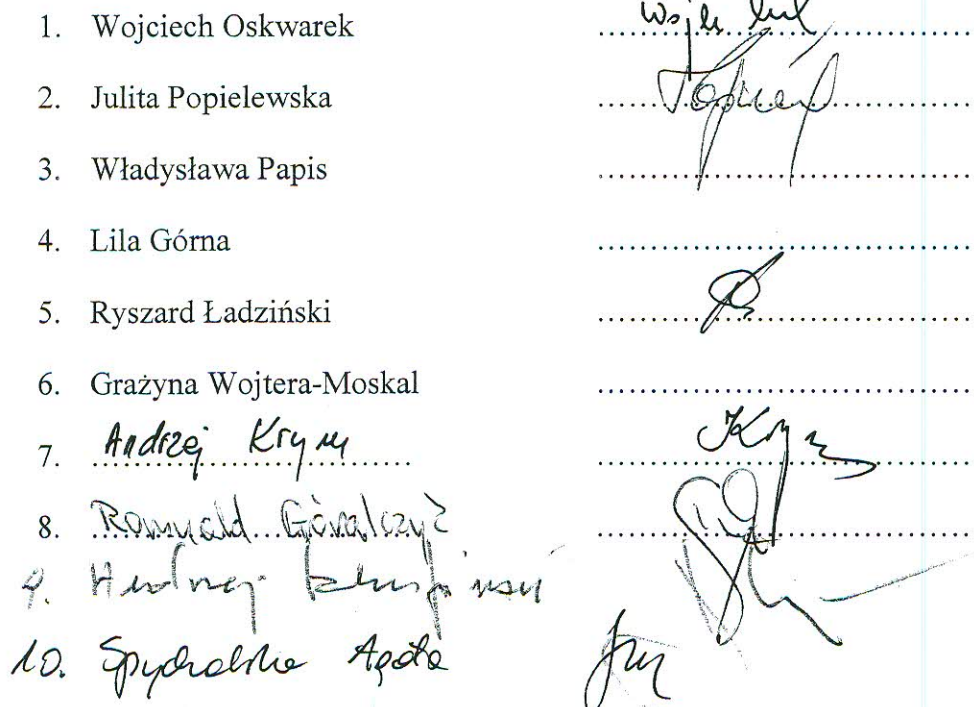 1. Wojciech Oskwarek
2. Julita Popielewska
3. Władysława Papis
4. Lila Górna
5. Ryszard Ładziński
6. Grażyna Wojtera-Moskal
7. Andrzej Krym
8. Romuald Góralczyk
9. Andrzej
10. Spychalska Agata